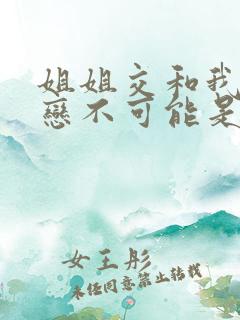 姐姐交和我
戀不可能是
女王彤
未任同意禁止转载